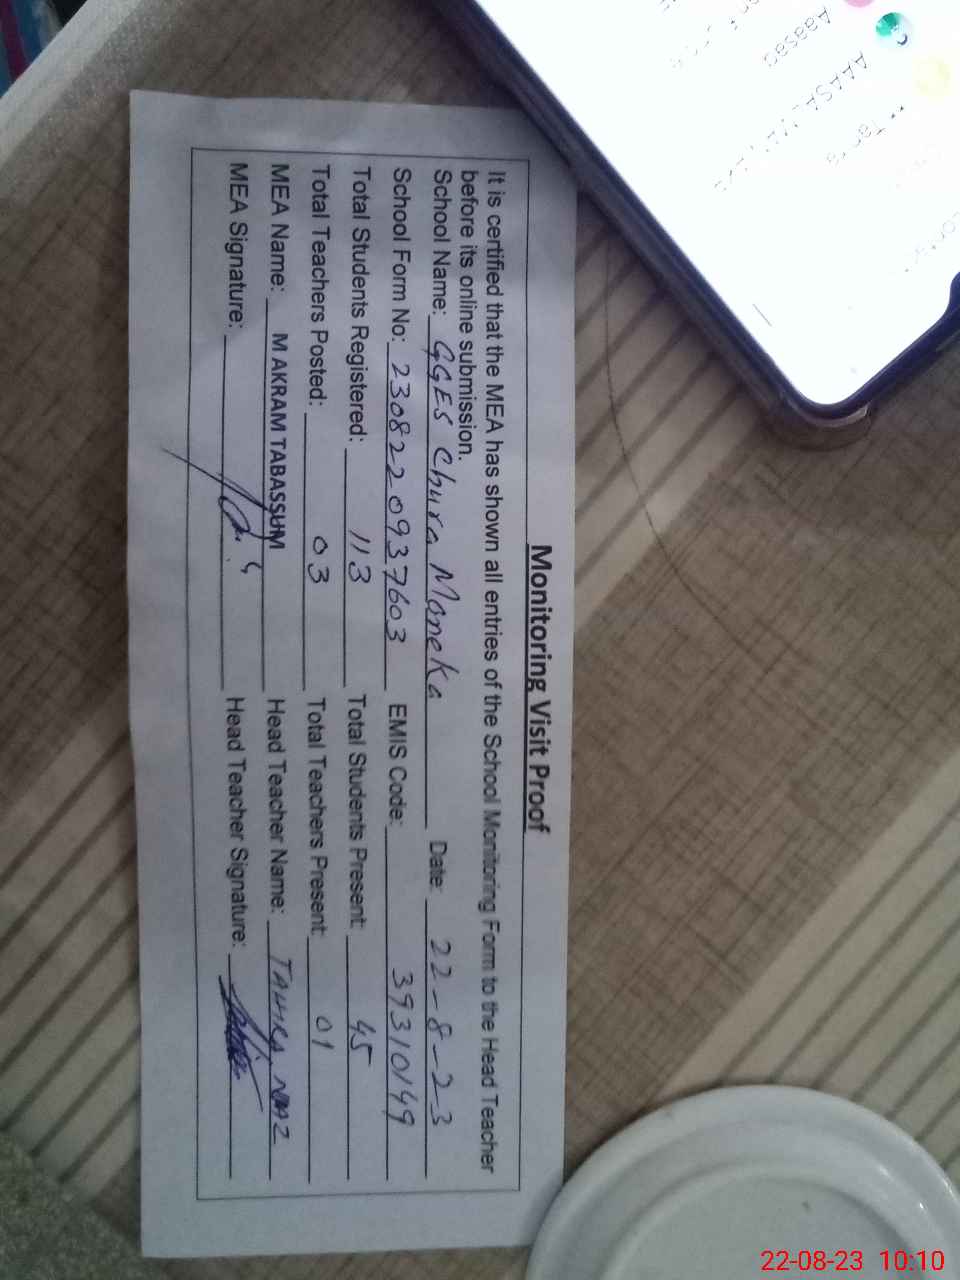 Monitoring Visit Proof
It is certified that the MEA has shown all entries of the School Monitoring Form to the Head Teacher
before its online submission.
School Name: GGES Chura Maneka Date: 22-8-23
School Form No: 2308220937603 EMIS Code: 39310149
Total Students Registered: 113 Total Students Present: 45
Total Teachers Posted: 03 Total Teachers Present: 01
MEA Name: M AKRAM TABASSUM Head Teacher Name: TAHRA NAZ
MEA Signature: Head Teacher Signature:
Aaasag
22-08-23 10:10